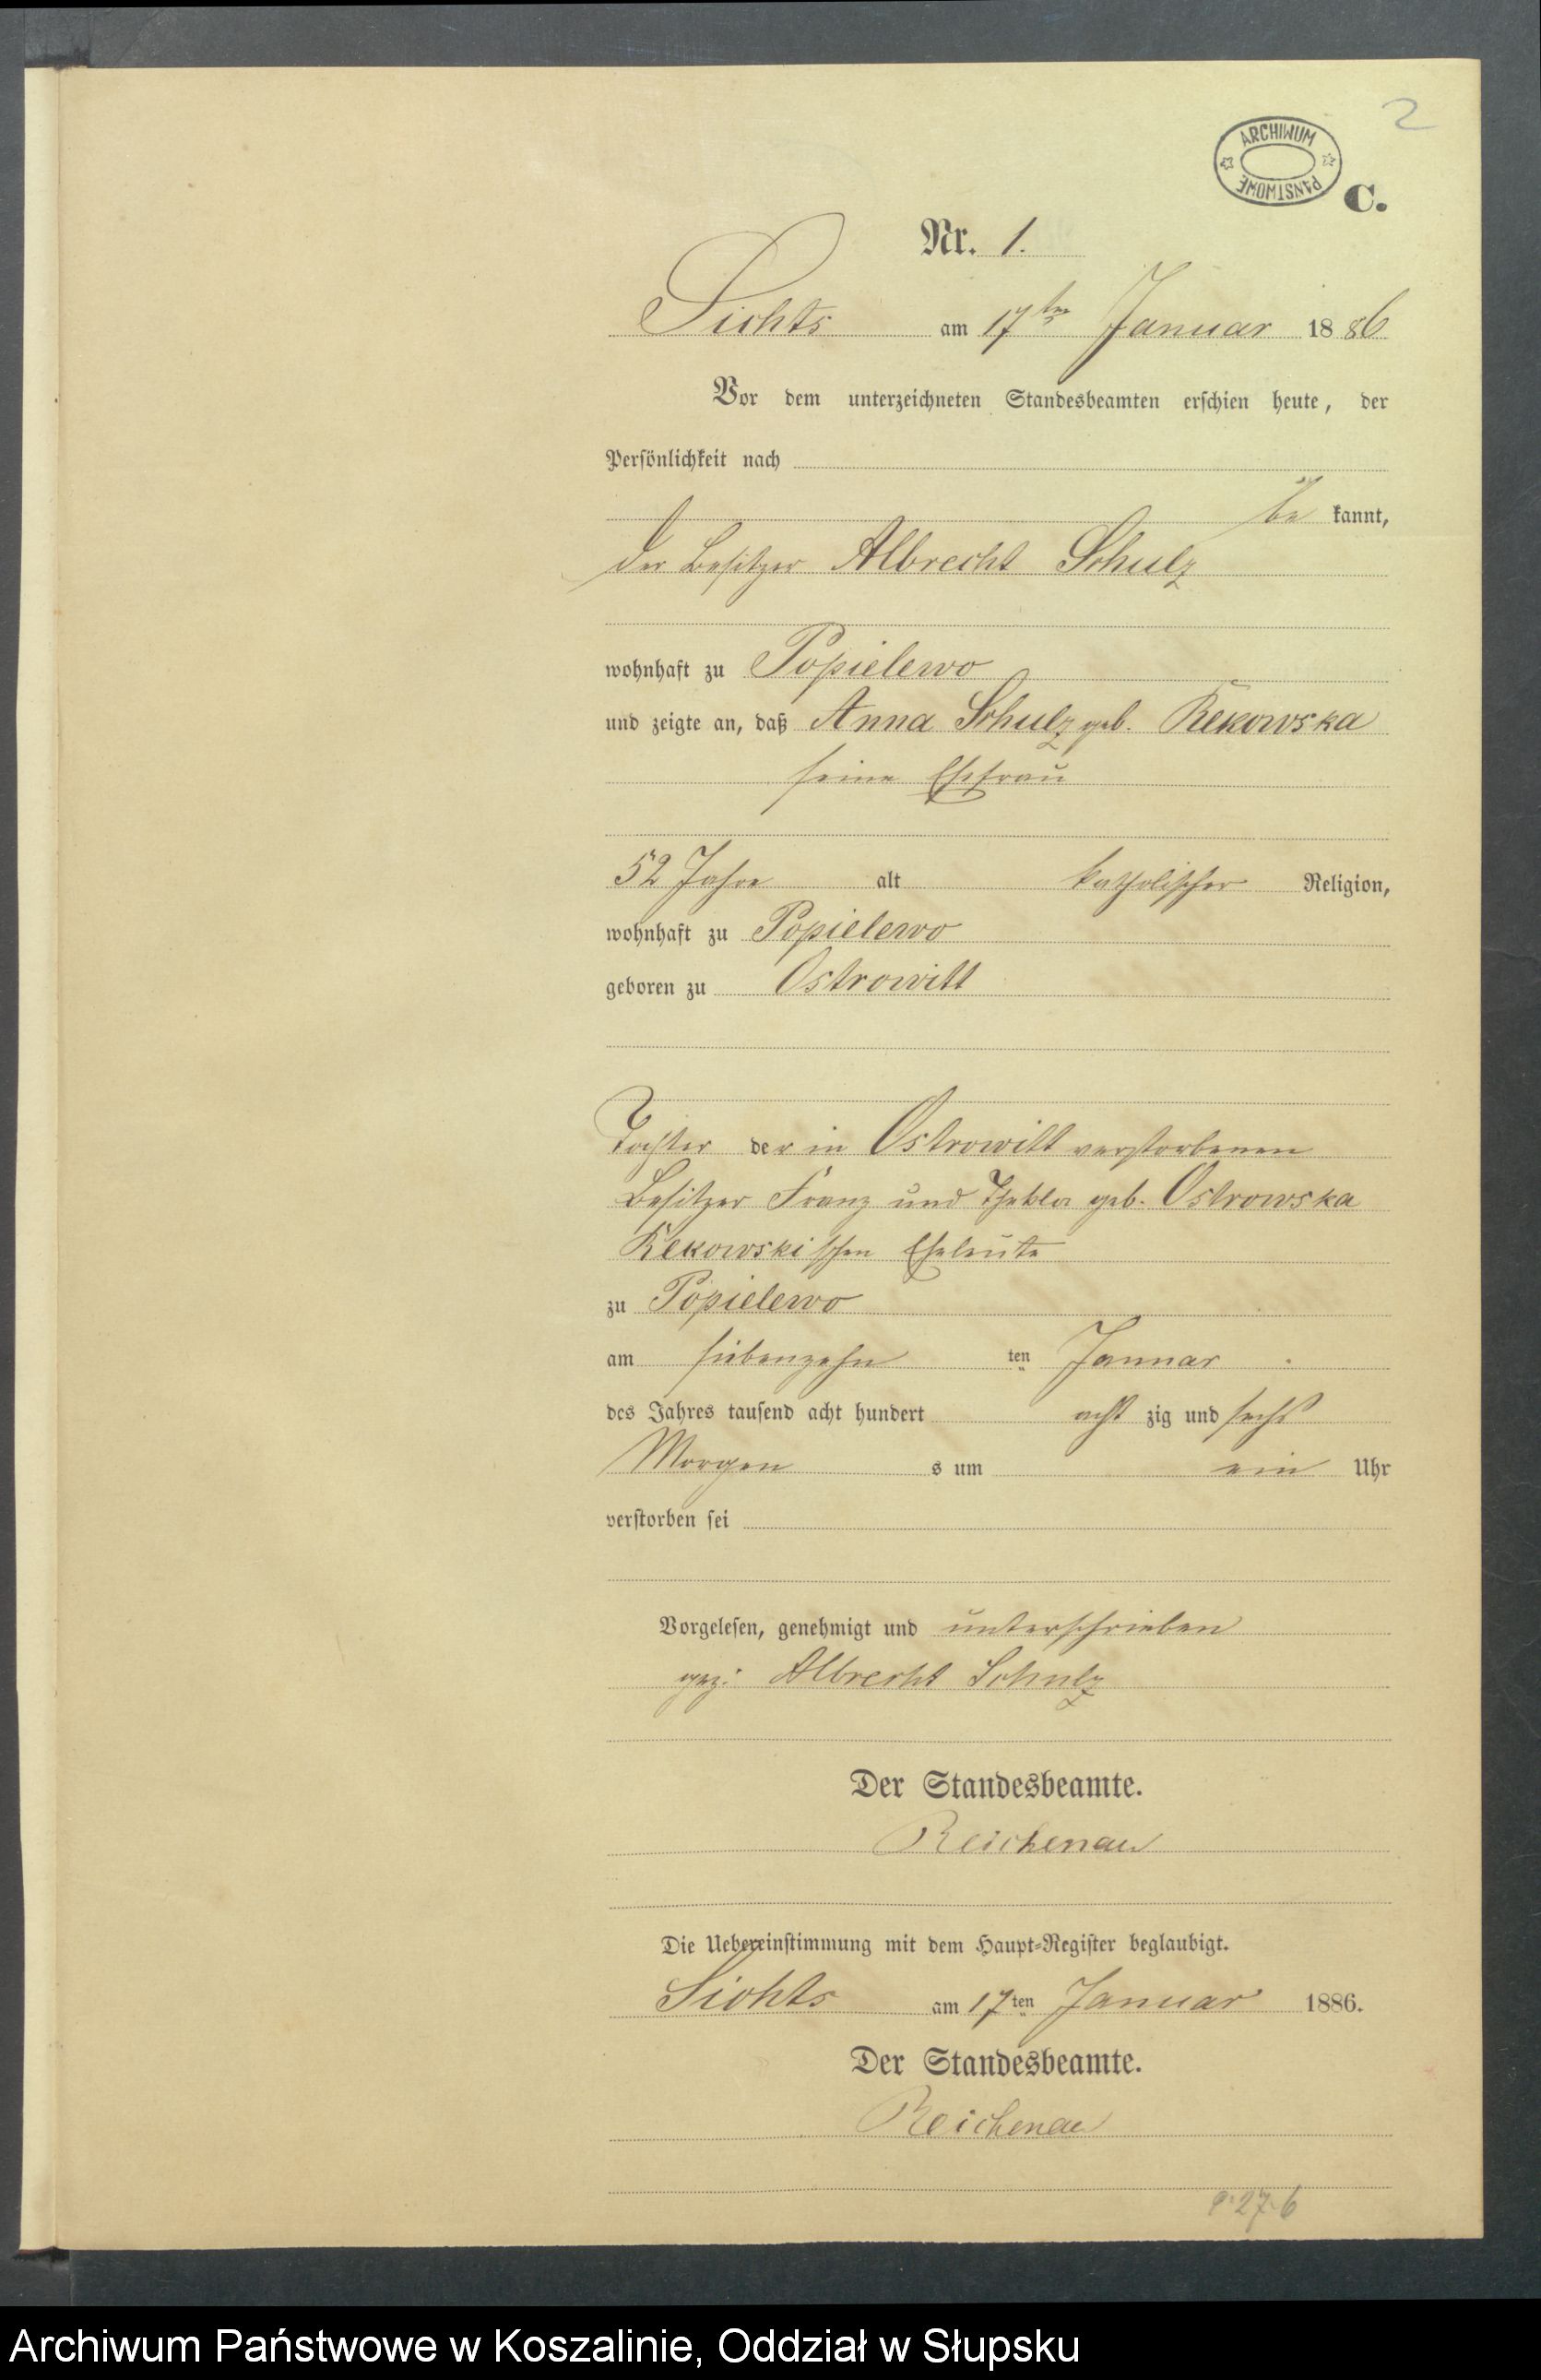 2
ARCHIWUM PAŃSTWOWE
C.
Nr. 1.
Lichts am 17ten Januar 1886
Vor dem unterzeichneten Standesbeamten erschien heute, der
Persönlichkeit nach
be kannt,
der Besitzer Albrecht Schulz
wohnhaft zu Popielewo
und zeigte an, daß Anna Schulz geb. Rekowska
seine Ehefrau
52 Jahre alt katholischer Religion,
wohnhaft zu Popielewo
geboren zu Ostrowitt
Tochter der in Ostrowitt verstorbenen
Besitzer Franz und Thekla geb. Ostrowska
Rekowskischen Eheleute
zu Popielewo
am siebenzehn ten Januar
des Jahres tausend acht hundert acht zig und sechs
Morgen s um ein Uhr
verstorben sei
Vorgelesen, genehmigt und unterschrieben
gez: Albrecht Schulz
Der Standesbeamte.
Reichenau
Die Uebereinstimmung mit dem Haupt-Register beglaubigt.
Lichts am 17ten Januar 1886.
Der Standesbeamte.
Reichenau
Archiwum Państwowe w Koszalinie, Oddział w Słupsku